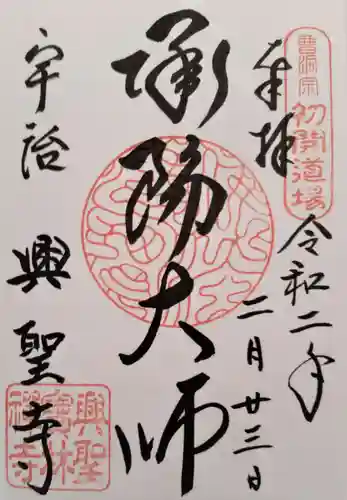 曹洞宗
初開道場
奉拝
令和二年
二月廿三日
承陽大師
宇治
興聖寺
興聖
寶林
禅寺